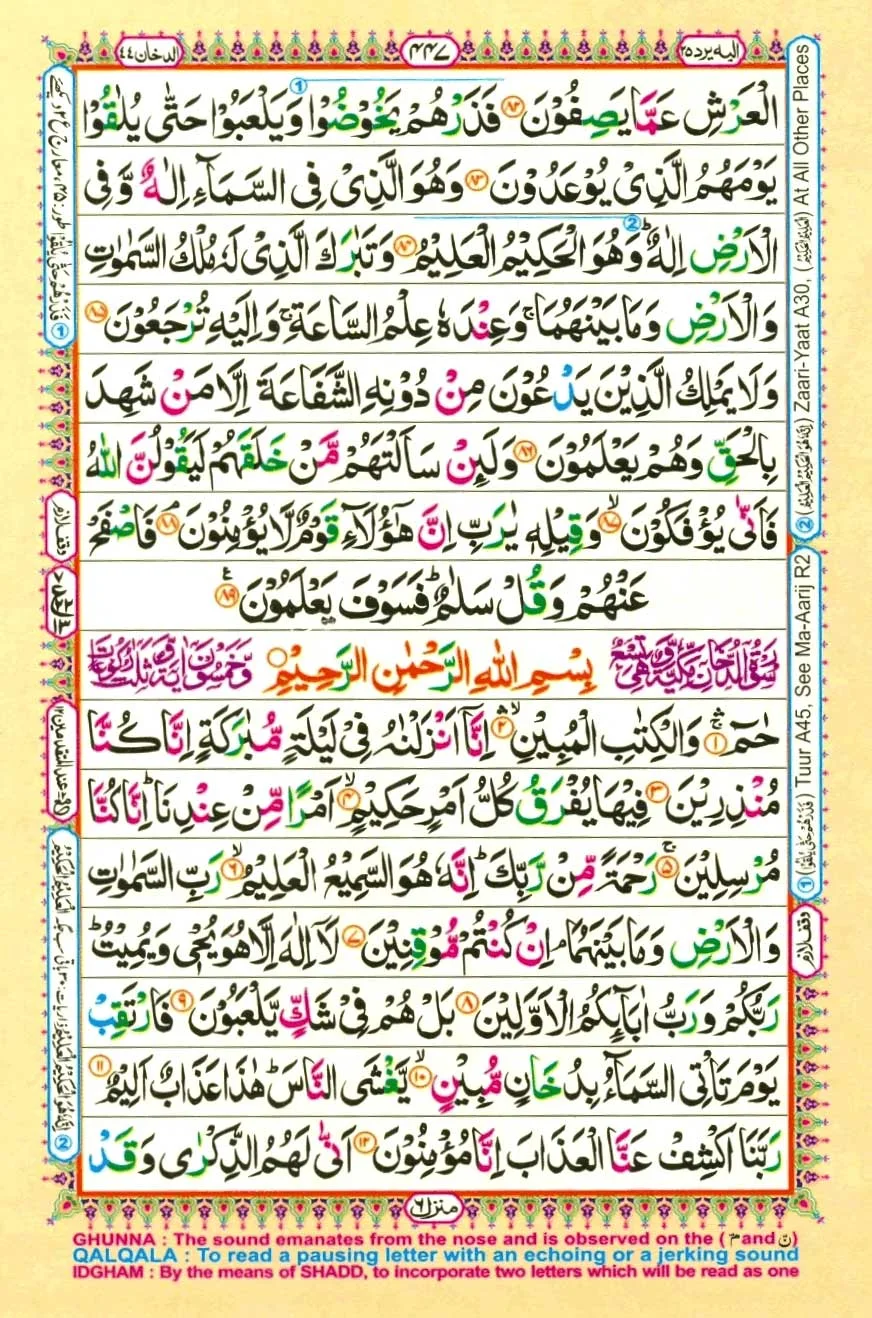 الدخان ٤٤
٤٤٧
اليه يرد ٢٥
الْعَرْشِ عَمَّا يَصِفُوْنَ ﴿٨٢﴾ فَذَرْهُمْ يَخُوْضُوْا وَيَلْعَبُوْا حَتّٰى يُلٰقُوْا
يَوْمَهُمُ الَّذِىْ يُوْعَدُوْنَ ﴿٨٣﴾ وَهُوَ الَّذِىْ فِى السَّمَآءِ اِلٰهٌ وَّفِى
الْاَرْضِ اِلٰهٌ ؕ وَهُوَ الْحَكِيْمُ الْعَلِيْمُ ﴿٨٤﴾ وَتَبٰرَكَ الَّذِىْ لَهٗ مُلْكُ السَّمٰوٰتِ
وَالْاَرْضِ وَمَا بَيْنَهُمَا ۚ وَعِنْدَهٗ عِلْمُ السَّاعَةِ ۚ وَاِلَيْهِ تُرْجَعُوْنَ ﴿٨٥﴾
وَلَا يَمْلِكُ الَّذِيْنَ يَدْعُوْنَ مِنْ دُوْنِهِ الشَّفَاعَةَ اِلَّا مَنْ شَهِدَ
بِالْحَقِّ وَهُمْ يَعْلَمُوْنَ ﴿٨٦﴾ وَلَئِنْ سَاَلْتَهُمْ مَّنْ خَلَقَهُمْ لَيَقُوْلُنَّ اللّٰهُ
فَاَنّٰى يُؤْفَكُوْنَ ۙ﴿٨٧﴾ وَقِيْلِهٖ يٰرَبِّ اِنَّ هٰٓؤُلَآءِ قَوْمٌ لَّا يُؤْمِنُوْنَ ۘ﴿٨٨﴾ فَاصْفَحْ
عَنْهُمْ وَقُلْ سَلٰمٌ ؕ فَسَوْفَ يَعْلَمُوْنَ ﴿٨٩﴾
سُوْرَةُ الدُّخَانِ مَكِّيَّةٌ وَّهِىَ تِسْعٌ بِسْمِ اللّٰهِ الرَّحْمٰنِ الرَّحِيْمِ وَّخَمْسُوْنَ اٰيَةً وَّثَلٰثُ رُكُوْعَاتٍ
حٰمٓ ۚ﴿١﴾ وَالْكِتٰبِ الْمُبِيْنِ ۙ﴿٢﴾ اِنَّآ اَنْزَلْنٰهُ فِىْ لَيْلَةٍ مُّبٰرَكَةٍ اِنَّا كُنَّا
مُنْذِرِيْنَ ﴿٣﴾ فِيْهَا يُفْرَقُ كُلُّ اَمْرٍ حَكِيْمٍ ۙ﴿٤﴾ اَمْرًا مِّنْ عِنْدِنَا ؕ اِنَّا كُنَّا
مُرْسِلِيْنَ ۚ﴿٥﴾ رَحْمَةً مِّنْ رَّبِّكَ ؕ اِنَّهٗ هُوَ السَّمِيْعُ الْعَلِيْمُ ۙ﴿٦﴾ رَبِّ السَّمٰوٰتِ
وَالْاَرْضِ وَمَا بَيْنَهُمَا ۘ اِنْ كُنْتُمْ مُّوْقِنِيْنَ ﴿٧﴾ لَآ اِلٰهَ اِلَّا هُوَ يُحْىٖ وَيُمِيْتُ ؕ
رَبُّكُمْ وَرَبُّ اٰبَآئِكُمُ الْاَوَّلِيْنَ ﴿٨﴾ بَلْ هُمْ فِىْ شَكٍّ يَّلْعَبُوْنَ ﴿٩﴾ فَارْتَقِبْ
يَوْمَ تَاْتِى السَّمَآءُ بِدُخَانٍ مُّبِيْنٍ ۙ﴿١٠﴾ يَّغْشَى النَّاسَ ؕ هٰذَا عَذَابٌ اَلِيْمٌ ﴿١١﴾
رَبَّنَا اكْشِفْ عَنَّا الْعَذَابَ اِنَّا مُؤْمِنُوْنَ ﴿١٢﴾ اَنّٰى لَهُمُ الذِّكْرٰى وَقَدْ
منزل ٦
② (وَهُوَ الْحَكِيْمُ الْعَلِيْمُ) Zaari-Yaat A30, (الْعَلِيْمُ الْحَكِيْمُ) At All Other Places
① (فَذَرْهُمْ حَتّٰى يُلٰقُوْا) Tuur A45, See Ma-Aarij R2
وقف لازم
وقف لازم
GHUNNA : The sound emanates from the nose and is observed on the (مّ and نّ)
QALQALA : To read a pausing letter with an echoing or a jerking sound
IDGHAM : By the means of SHADD, to incorporate two letters which will be read as one